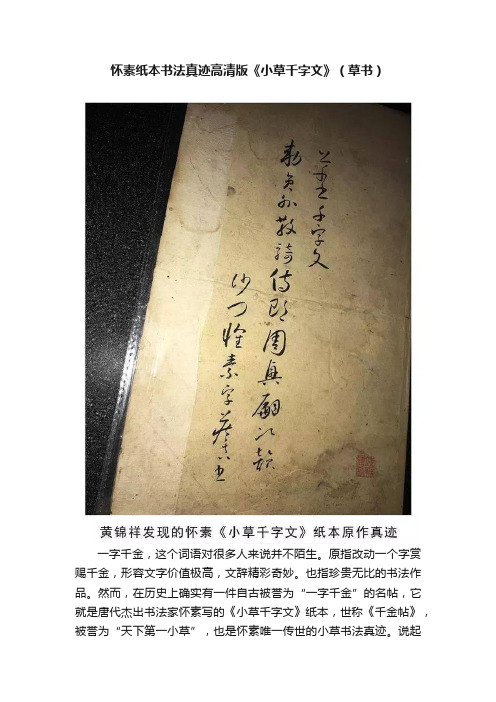 怀素纸本书法真迹高清版《小草千字文》(草书)
千字文
敕員外散騎侍郎周興嗣次韻
沙门懷素字
黄锦祥发现的怀素《小草千字文》纸本原作真迹
一字千金，这个词语对很多人来说并不陌生。原指改动一个字赏
赐千金，形容文字价值极高，文辞精彩奇妙。也指珍贵无比的书法作
品。然而，在历史上确实有一件自古被誉为“一字千金”的名帖，它
就是唐代杰出书法家怀素写的《小草千字文》纸本，世称《千金帖》，
被誉为“天下第一小草”，也是怀素唯一传世的小草书法真迹。说起